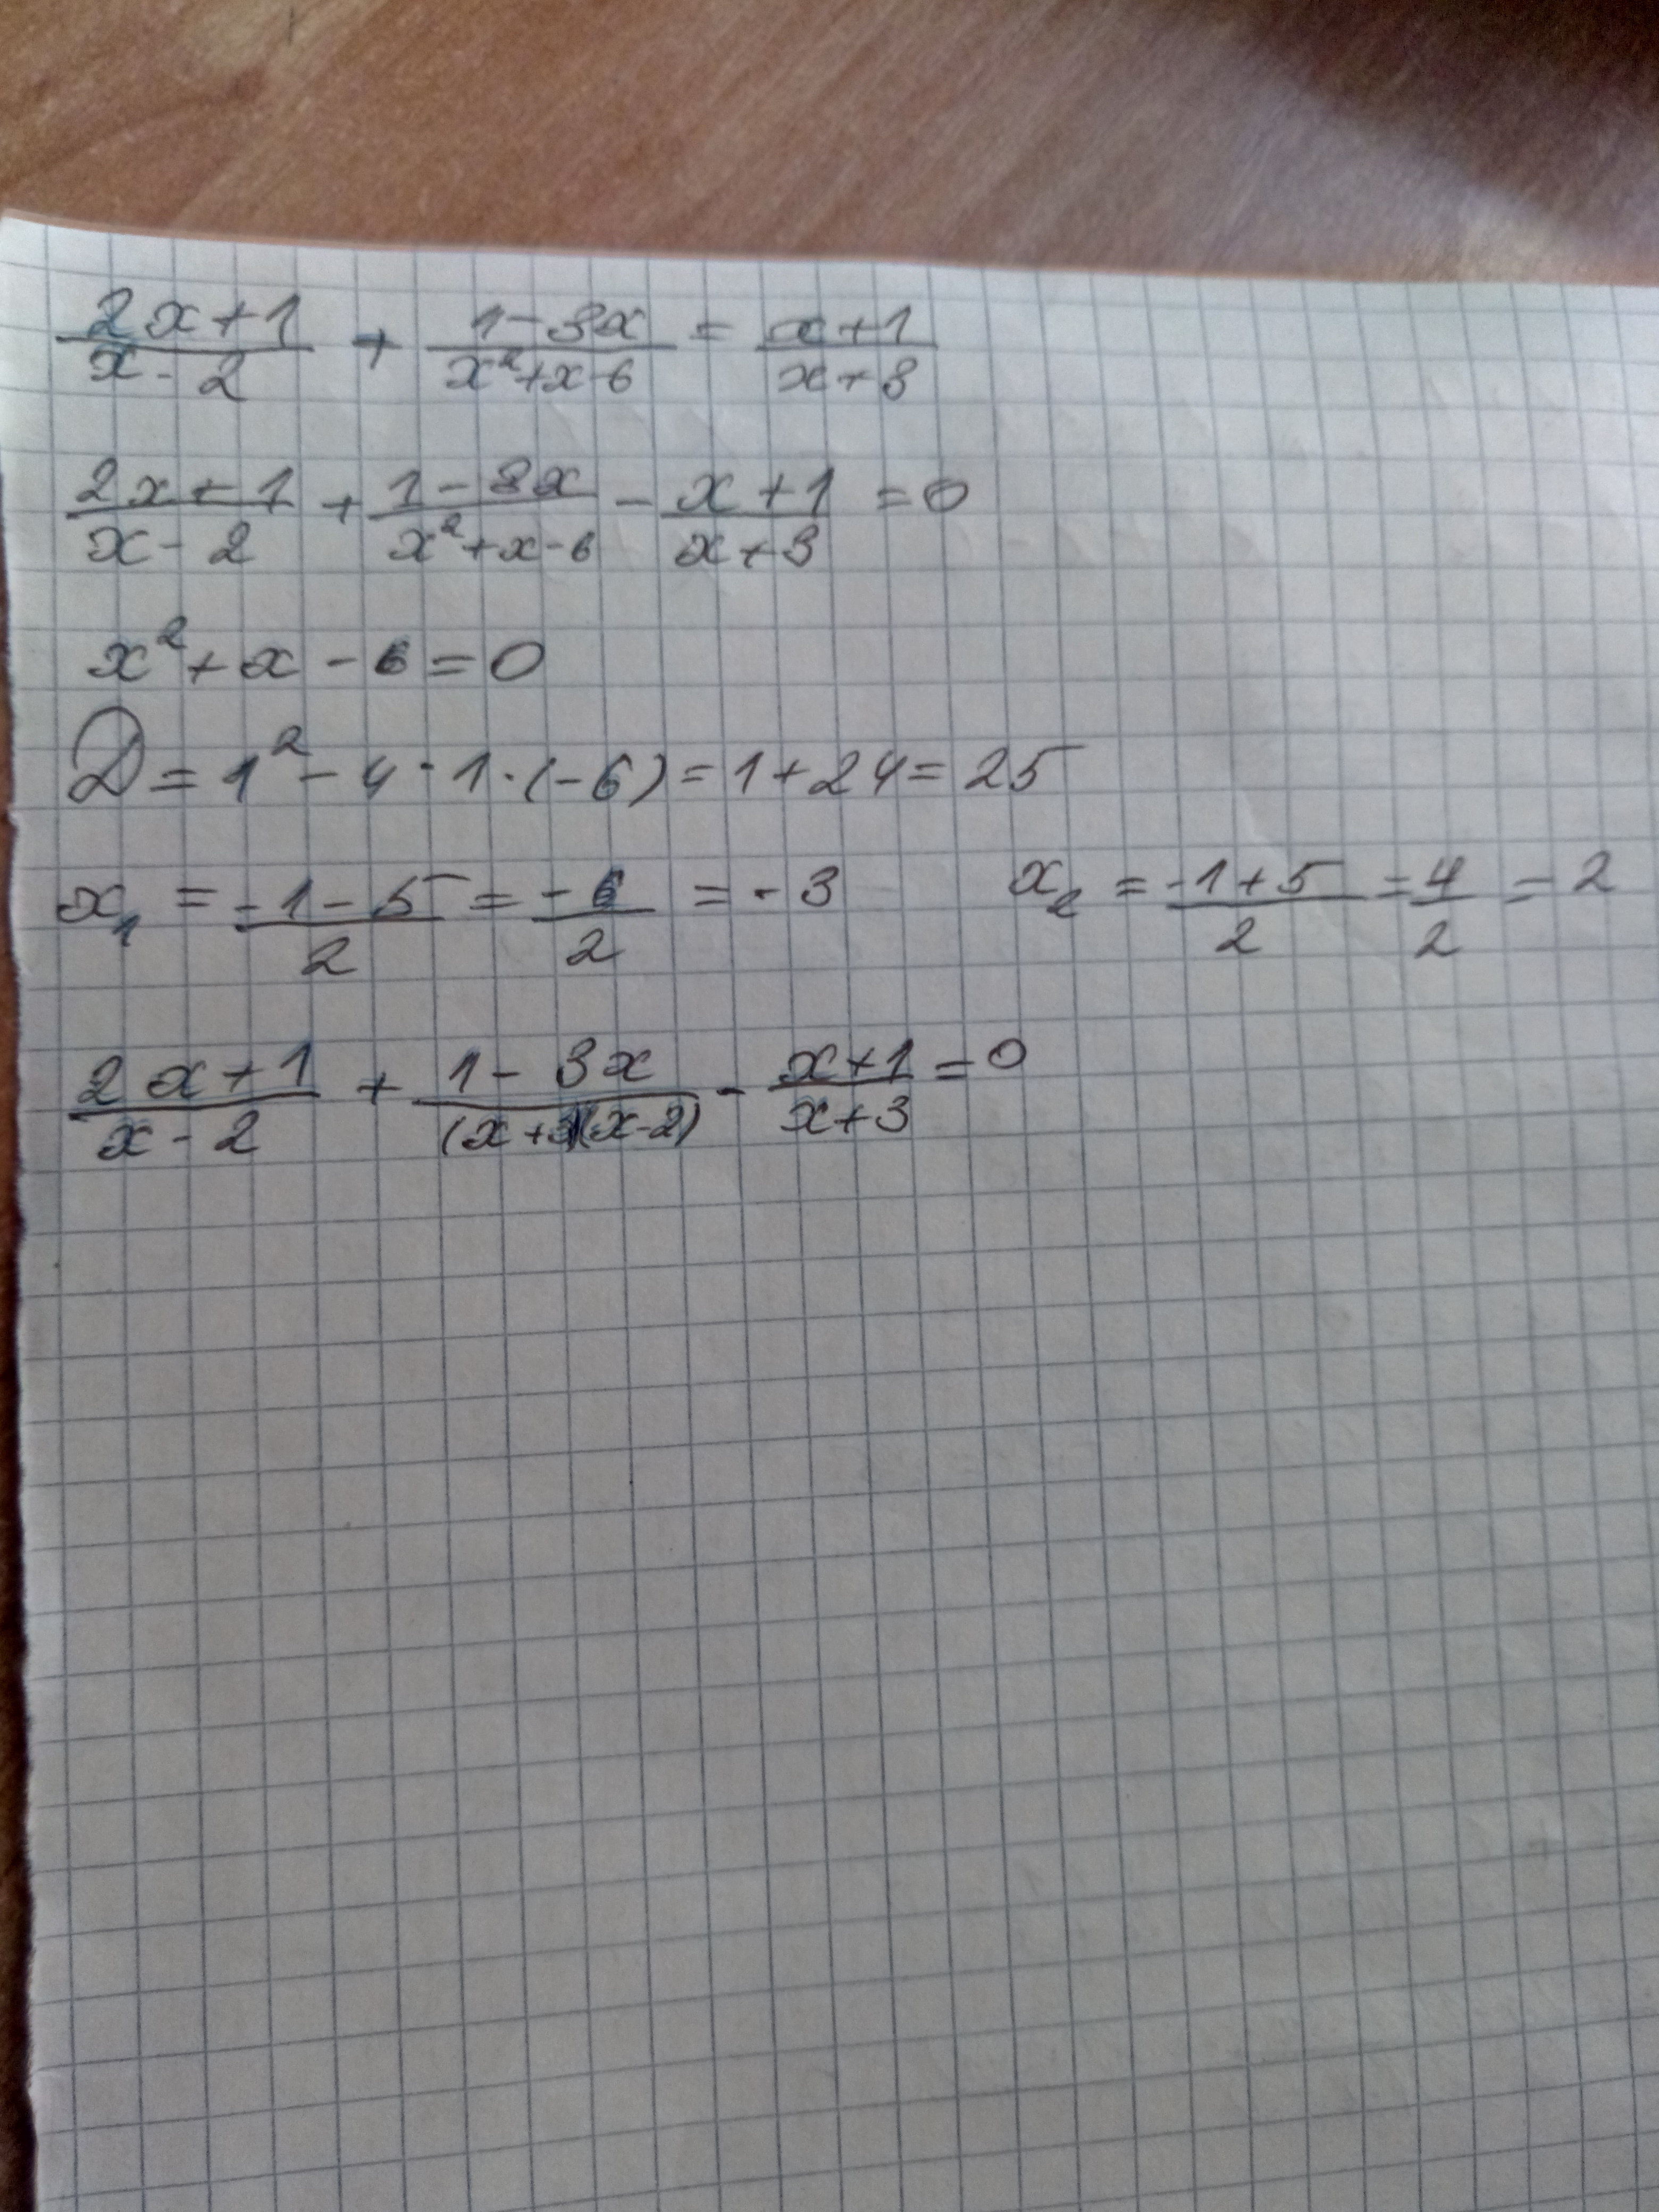 (2x+1)/(x-2) + (1-3x)/(x²+x-6) = (x+1)/(x+3)
(2x+1)/(x-2) + (1-3x)/(x²+x-6) - (x+1)/(x+3) = 0
x²+x-6=0
D=1²-4·1·(-6)=1+24=25
x₁ = (-1-5)/2 = -6/2 = -3   x₂ = (-1+5)/2 = 4/2 = 2
(2x+1)/(x-2) + (1-3x)/((x+3)(x-2)) - (x+1)/(x+3) = 0